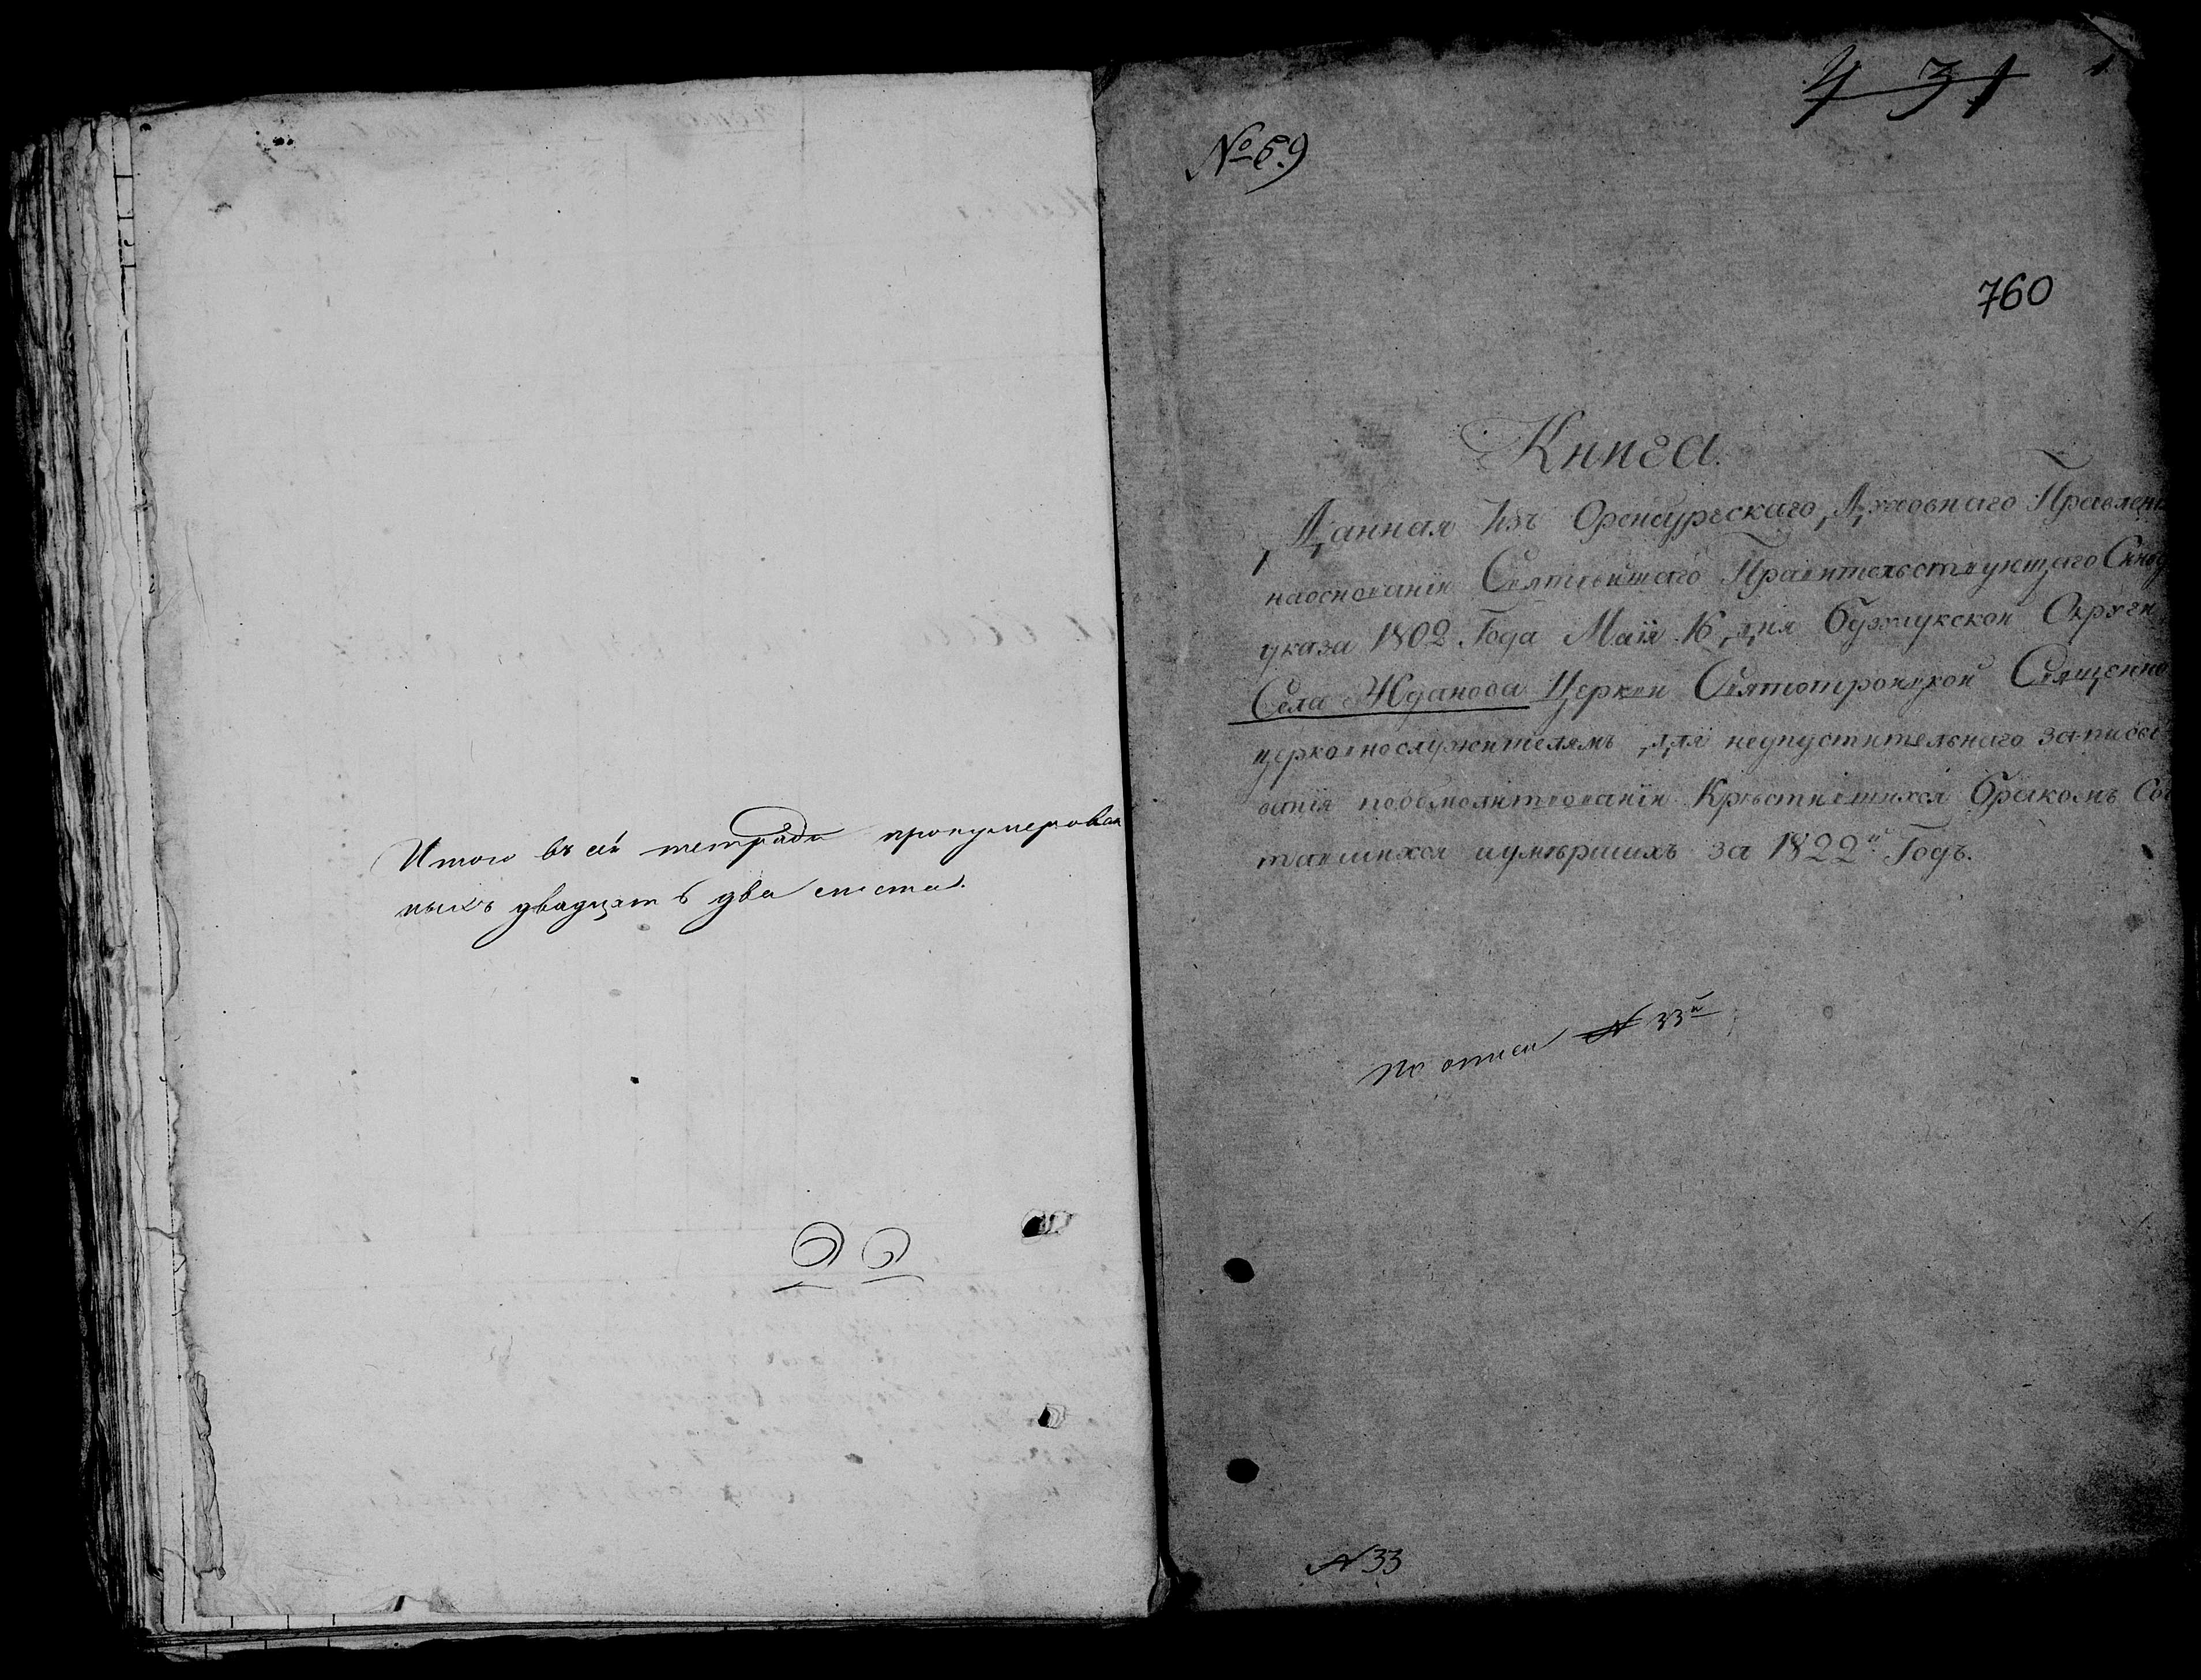 Итого въ сей тетради пронумерован
ныхъ двадцать два листа.
22
431
1
№ 69
760
Книга.
Данная Изъ Оренбургскаго Духовнаго Правлен
наосновании Святѣйшаго Правительствующаго Сино
указа 1802 Года Маїя 16 дня Бузулукской Округи
Села Жданова Церкви Святотроицкой Священно
церковнослужителямъ для неупустительнаго записы
ванїя
Крѣстившихся Бракомъ Соч
тавшихся иумѣршихъ за 1822й Годъ.
по описи № 33й
№ 33